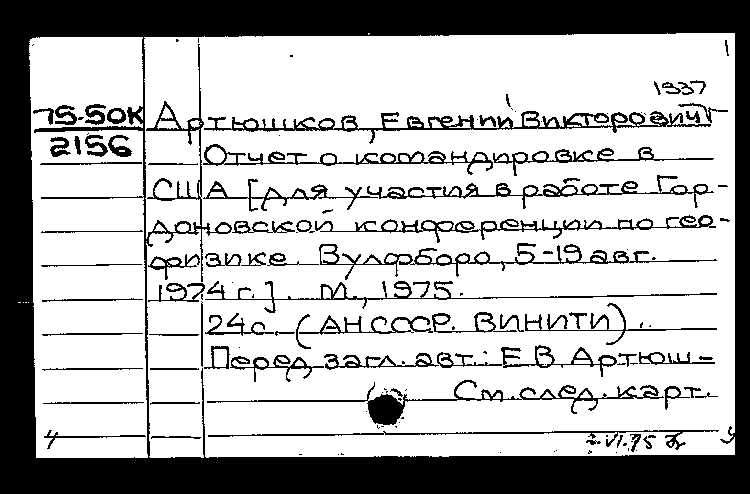 1937
75-50К Артюшков, Евгений Викторович
2156 Отчет о командировке в
США [для участия в работе Гор-
доновской конференции по гео-
физике. Вулфборо, 5-19 авг.
1974 г.]. М., 1975.
24 с. (АН СССР. ВИНИТИ).
Перед загл. авт.: Е.В. Артюш-
См. след. карт.
4 2.VI.75